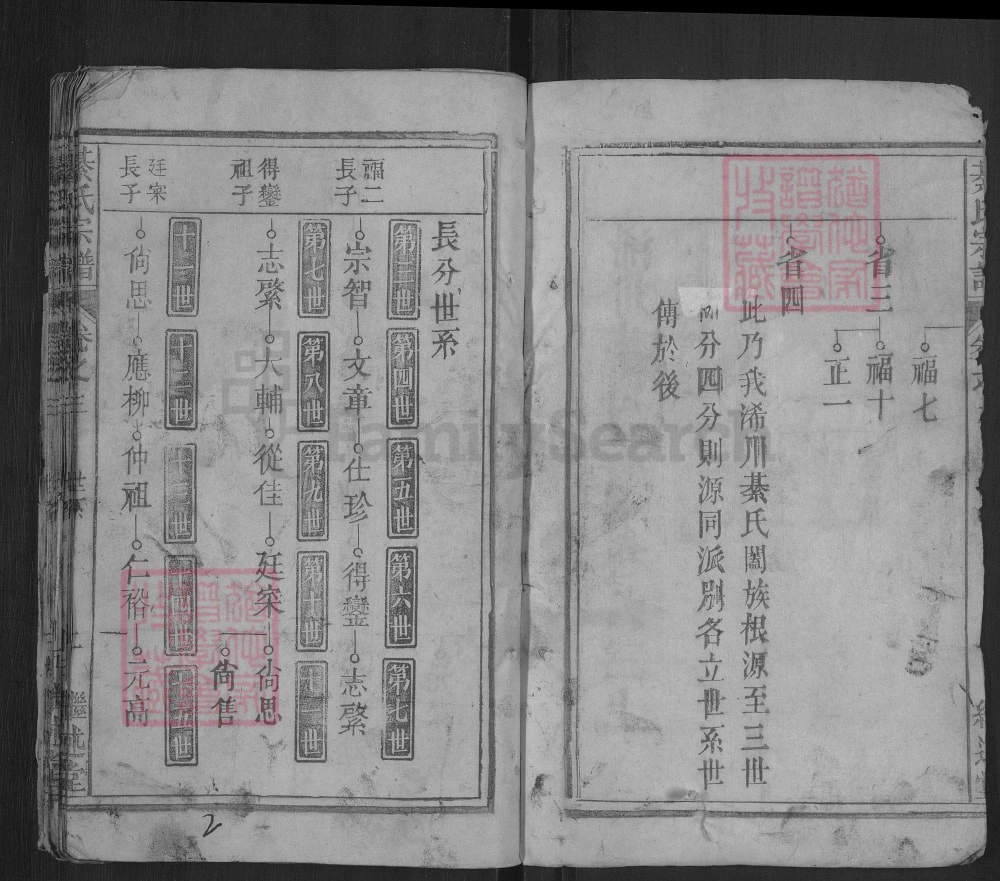 福七
省三 福十
正一
省四
此乃我浠川綦氏闔族根源至三世
分四分則源同派別各立世系世
傳於後
長分世系
第三世 第四世 第五世 第六世 第七世
福二長子
宗智 文章 仕珍 得鑾 志棨
第七世 第八世 第九世 第十世 十一世
得鑾祖子
志棨 大輔 從佳 廷寀 尙思
尙售
十一世 十二世 十三世 十四世 十五世
廷寀長子
尙思 應柳 仲祖 仁裕 元高
綦氏宗譜 卷之三 世系 繼述堂
2
FamilySearch